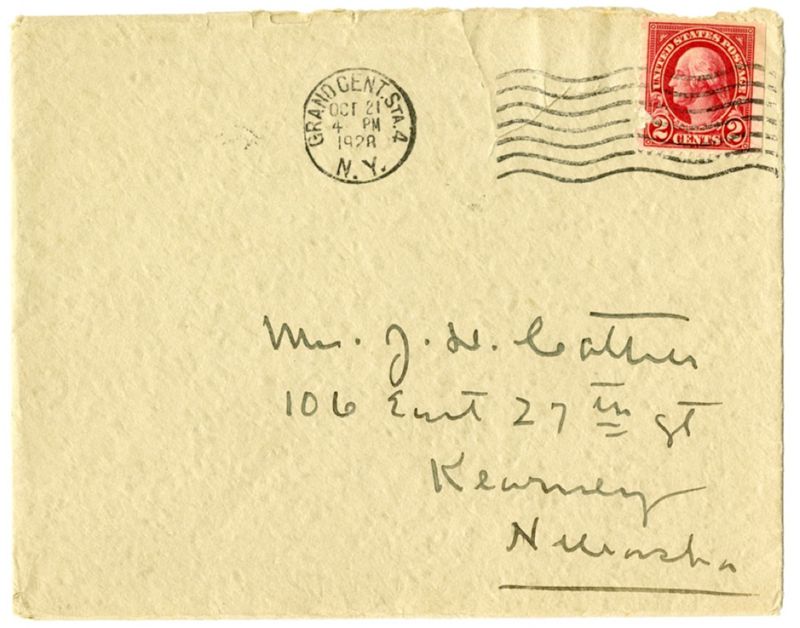 GRAND CENT. STA. 4
OCT 21
4 PM
1928
N. Y.
UNITED STATES POSTAGE
2 CENTS 2
Mrs. J. H. Cather
106 East 27th St
Kearney
Nebraska